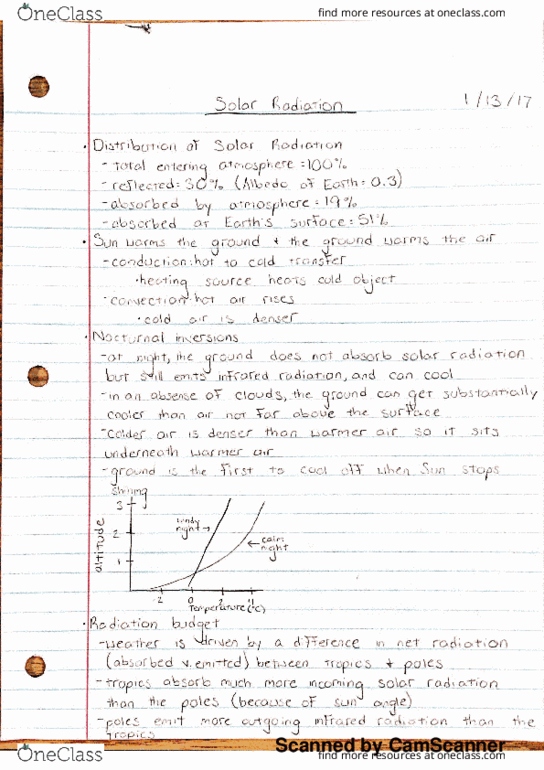 OneClass
find more resources at oneclass.com
Solar Radiation
1/13/17
• Distribution of Solar Radiation
- total entering atmosphere = 100%
- reflected = 30% (Albedo of Earth = 0.3)
- absorbed by atmosphere = 19%
- absorbed at Earth's surface = 51%
• Sun warms the ground + the ground warms the air
- conduction: hot to cold transfer
• heating source heats cold object
- convection: hot air rises
• cold air is denser
• Nocturnal inversions
- at night, the ground does not absorb solar radiation
but still emits infrared radiation, and can cool
- in an absense of clouds, the ground can get substantially
cooler than air not far above the surface
- colder air is denser than warmer air so it sits
underneath warmer air
- ground is the first to cool off when Sun stops
shining
3
2
1
altitude
windy
night →
← calm
night
-2 0 2 4
Temperature (°C)
• Radiation budget
- weather is driven by a difference in net radiation
(absorbed v. emitted) between tropics + poles
- tropics absorb much more incoming solar radiation
than the poles (because of sun angle)
- poles emit more outgoing infrared radiation than the
tropics
Scanned by CamScanner
OneClass
find more resources at oneclass.com